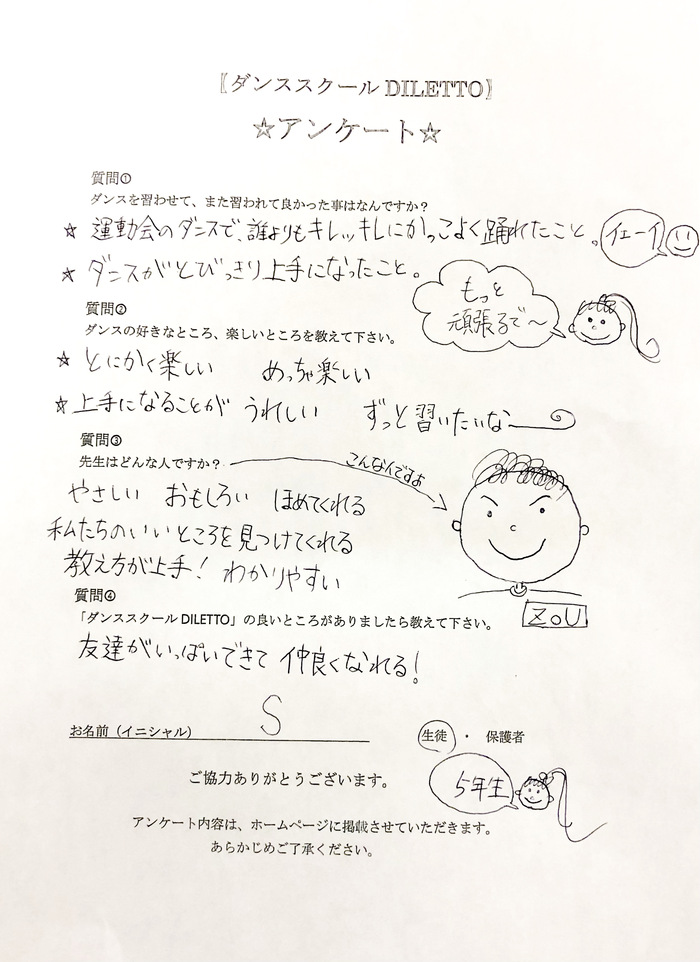 〖ダンススクール DILETTO〗
☆アンケート☆
質問①
ダンスを習わせて、また習われて良かった事はなんですか？
☆ 運動会のダンスで、誰よりもキレッキレにかっこよく踊れたこと。 イエーイ
☆ ダンスがとびっきり上手になったこと。
もっと
頑張るで〜
質問②
ダンスの好きなところ、楽しいところを教えて下さい。
☆ とにかく楽しい めっちゃ楽しい
☆ 上手になることが うれしい ずっと習いたいな〜
質問③
先生はどんな人ですか？ こんなんですよ
やさしい おもしろい ほめてくれる
私たちのいいところを見つけてくれる
教え方が上手！ わかりやすい
ZOU
質問④
「ダンススクール DILETTO」の良いところがありましたら教えて下さい。
友達がいっぱいできて 仲良くなれる！
お名前（イニシャル） S 生徒 ・ 保護者
ご協力ありがとうございます。
5年生
アンケート内容は、ホームページに掲載させていただきます。
あらかじめご了承ください。